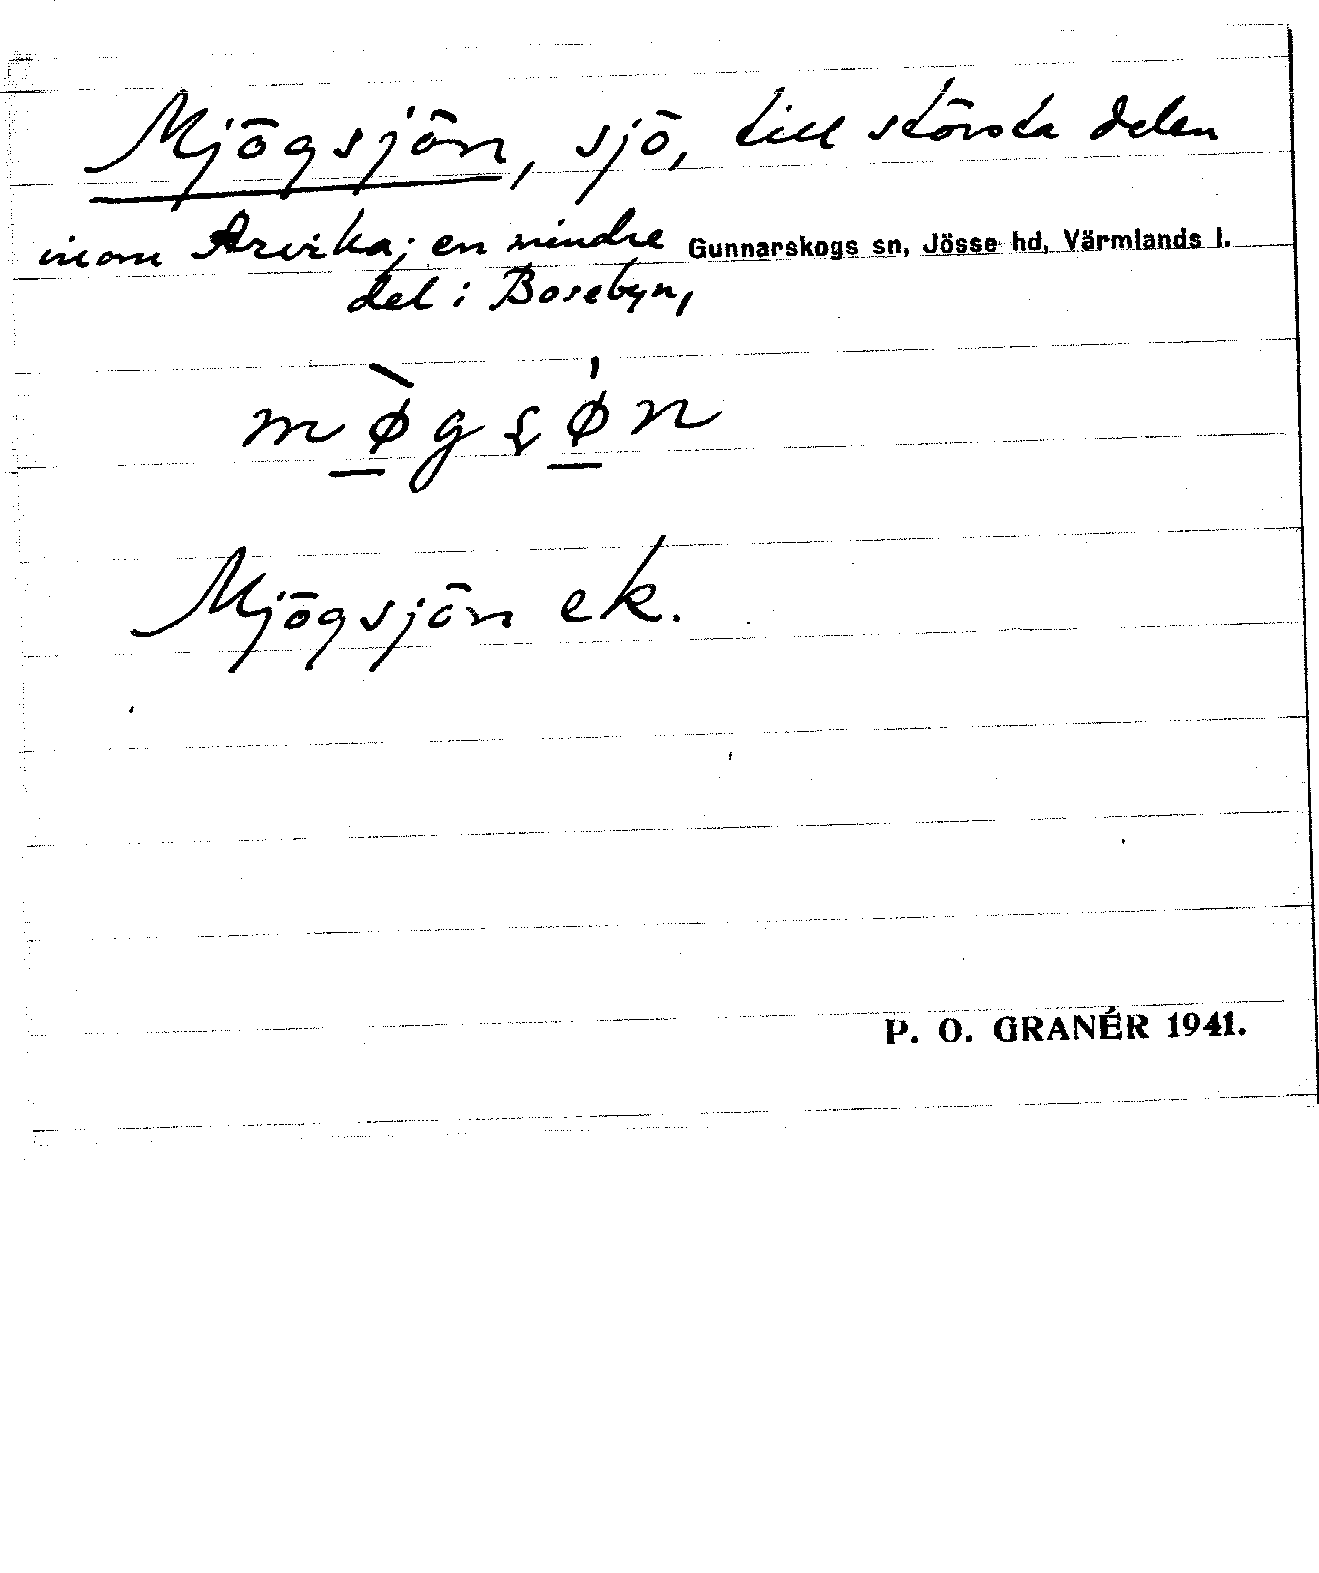 Mjögsjön, sjö, till största delen
inom Arvika; en mindre Gunnarskogs sn, Jösse hd, Värmlands l.
del i Bosebyn,
mø̀gʂǿn
Mjögsjön ek.
P. O. GRANÉR 1941.